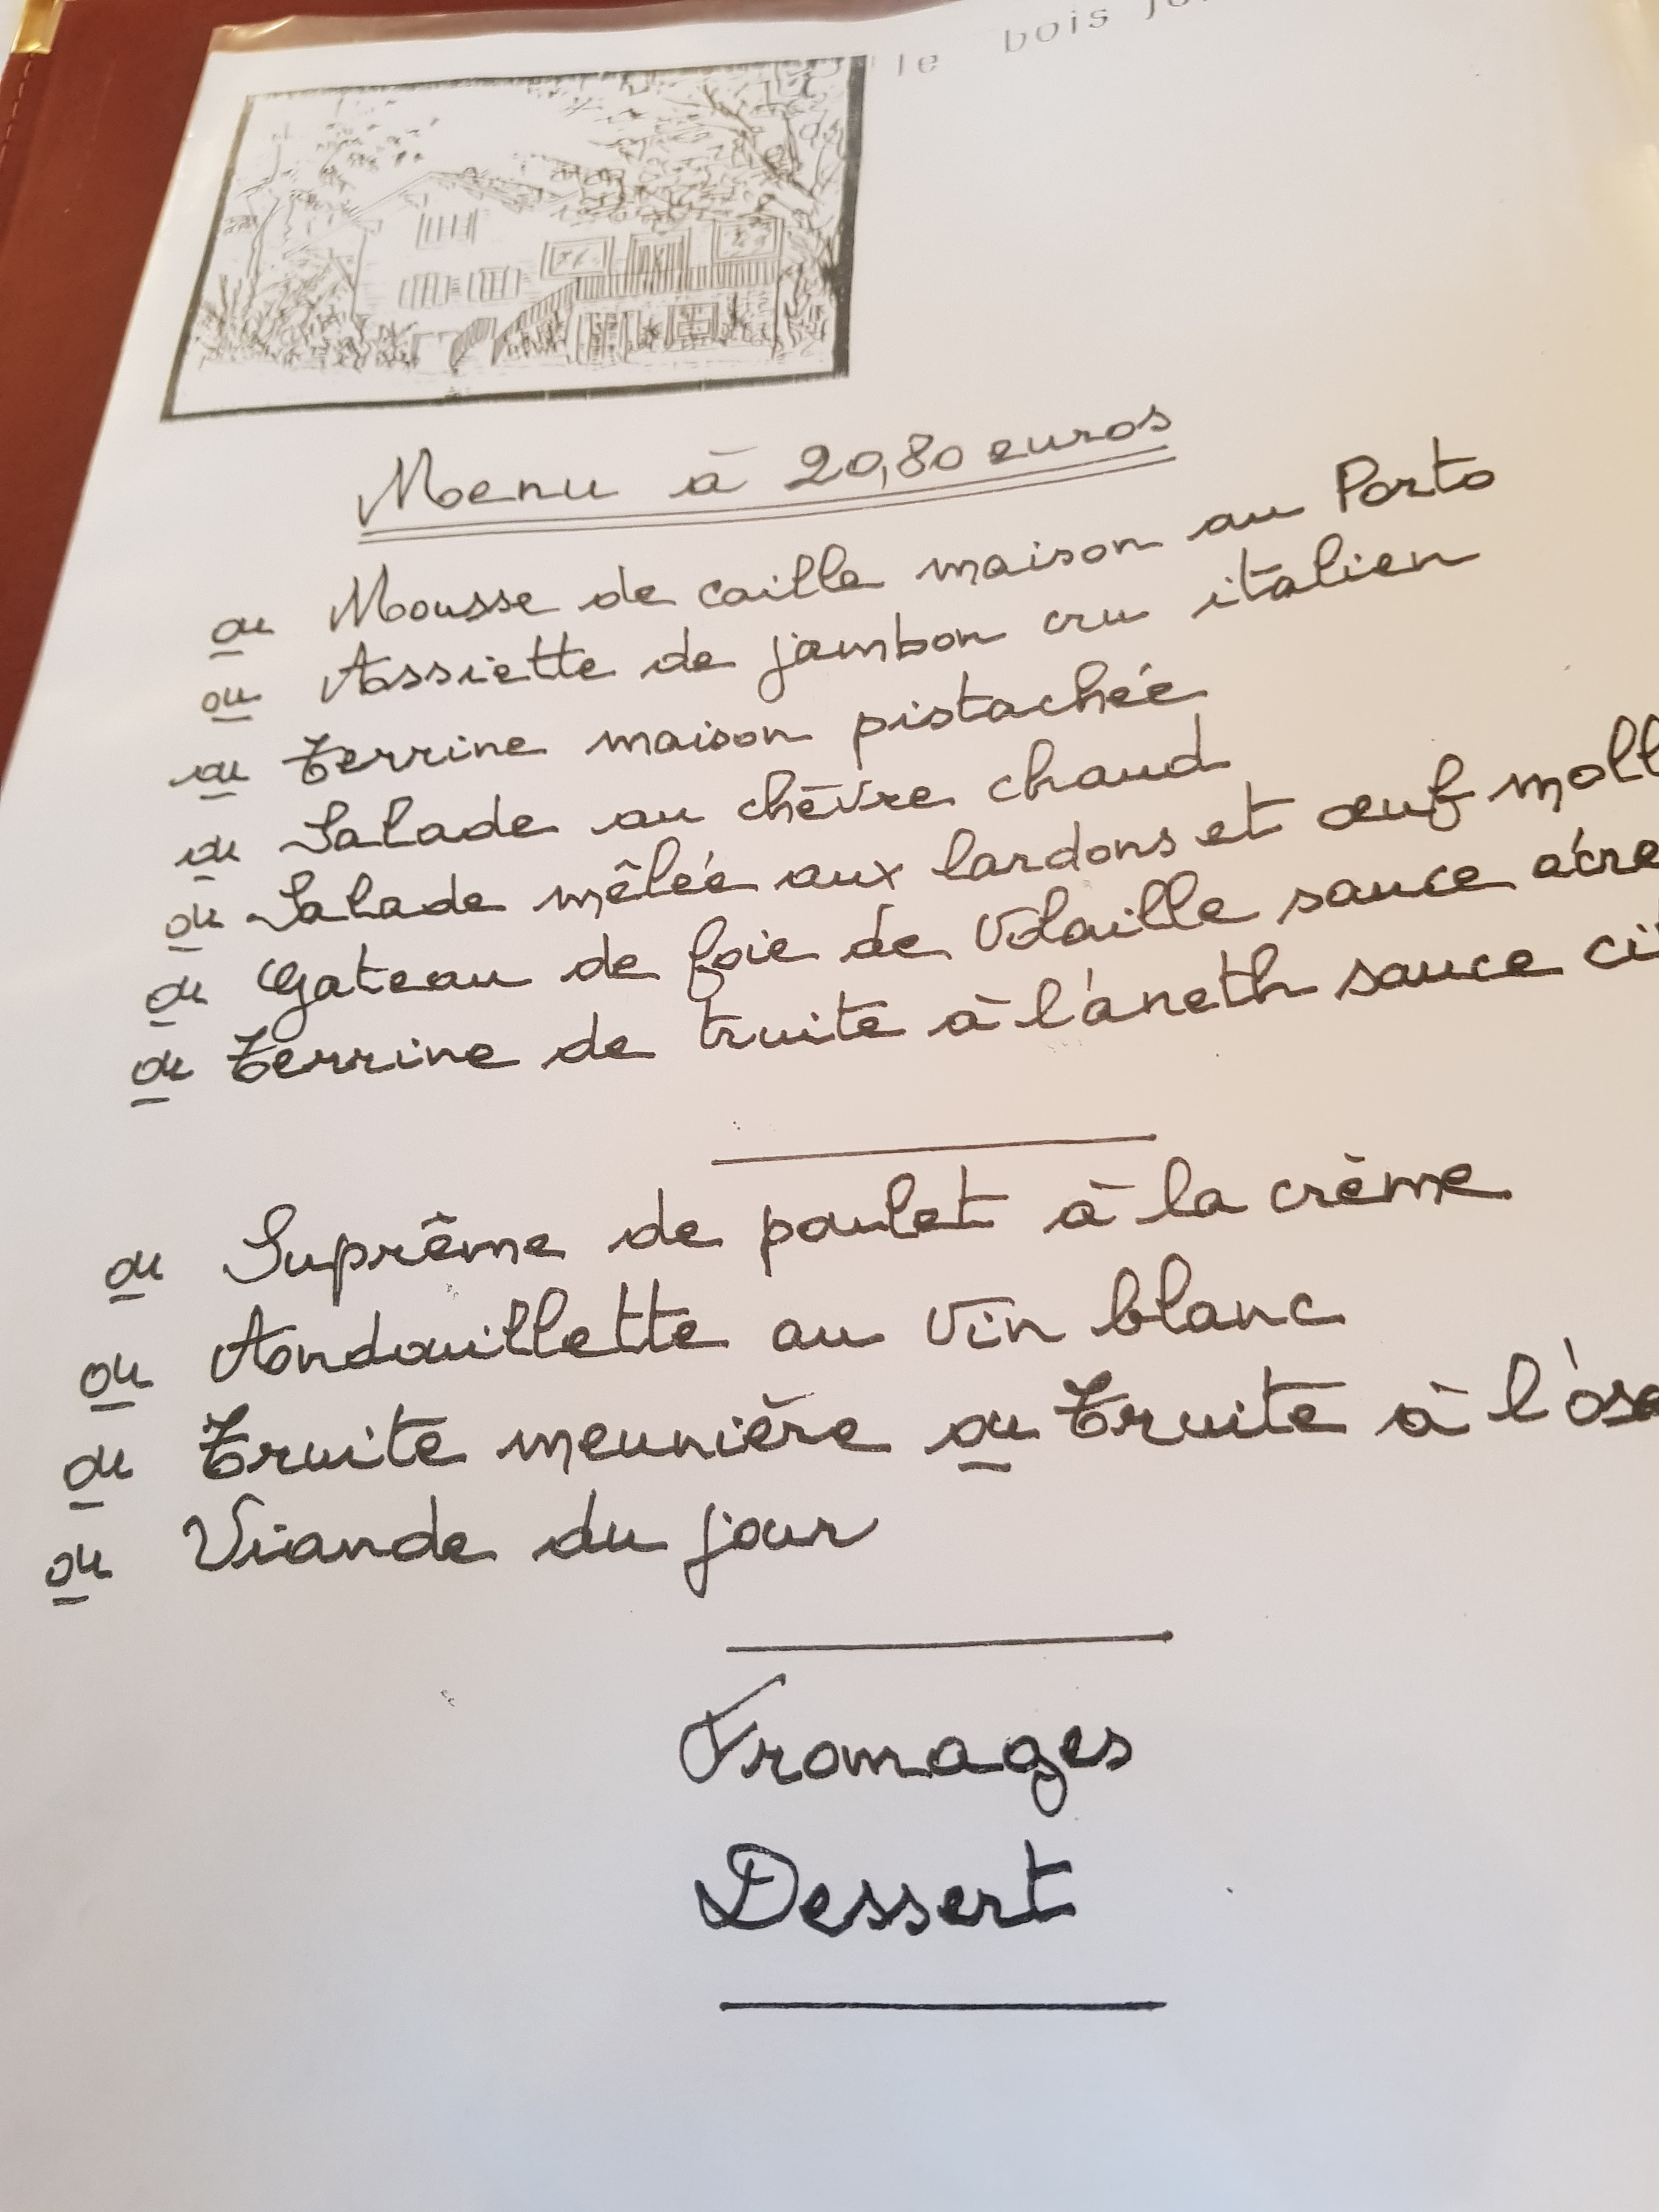 le bois jo
Menu à 20,80 euros
ou Mousse de caille maison au Porto
ou Assiette de jambon cru italien
ou Terrine maison pistachée
ou Salade au chèvre chaud
ou Salade mêlée aux lardons et œuf moll
ou Gateau de foie de Volaille sauce écre
ou Terrine de truite à l'aneth sauce ci
ou Suprême de poulet à la crème
ou Andouillette au vin blanc
ou Truite meunière ou Truite à l'ose
ou Viande du jour
Fromages
Dessert